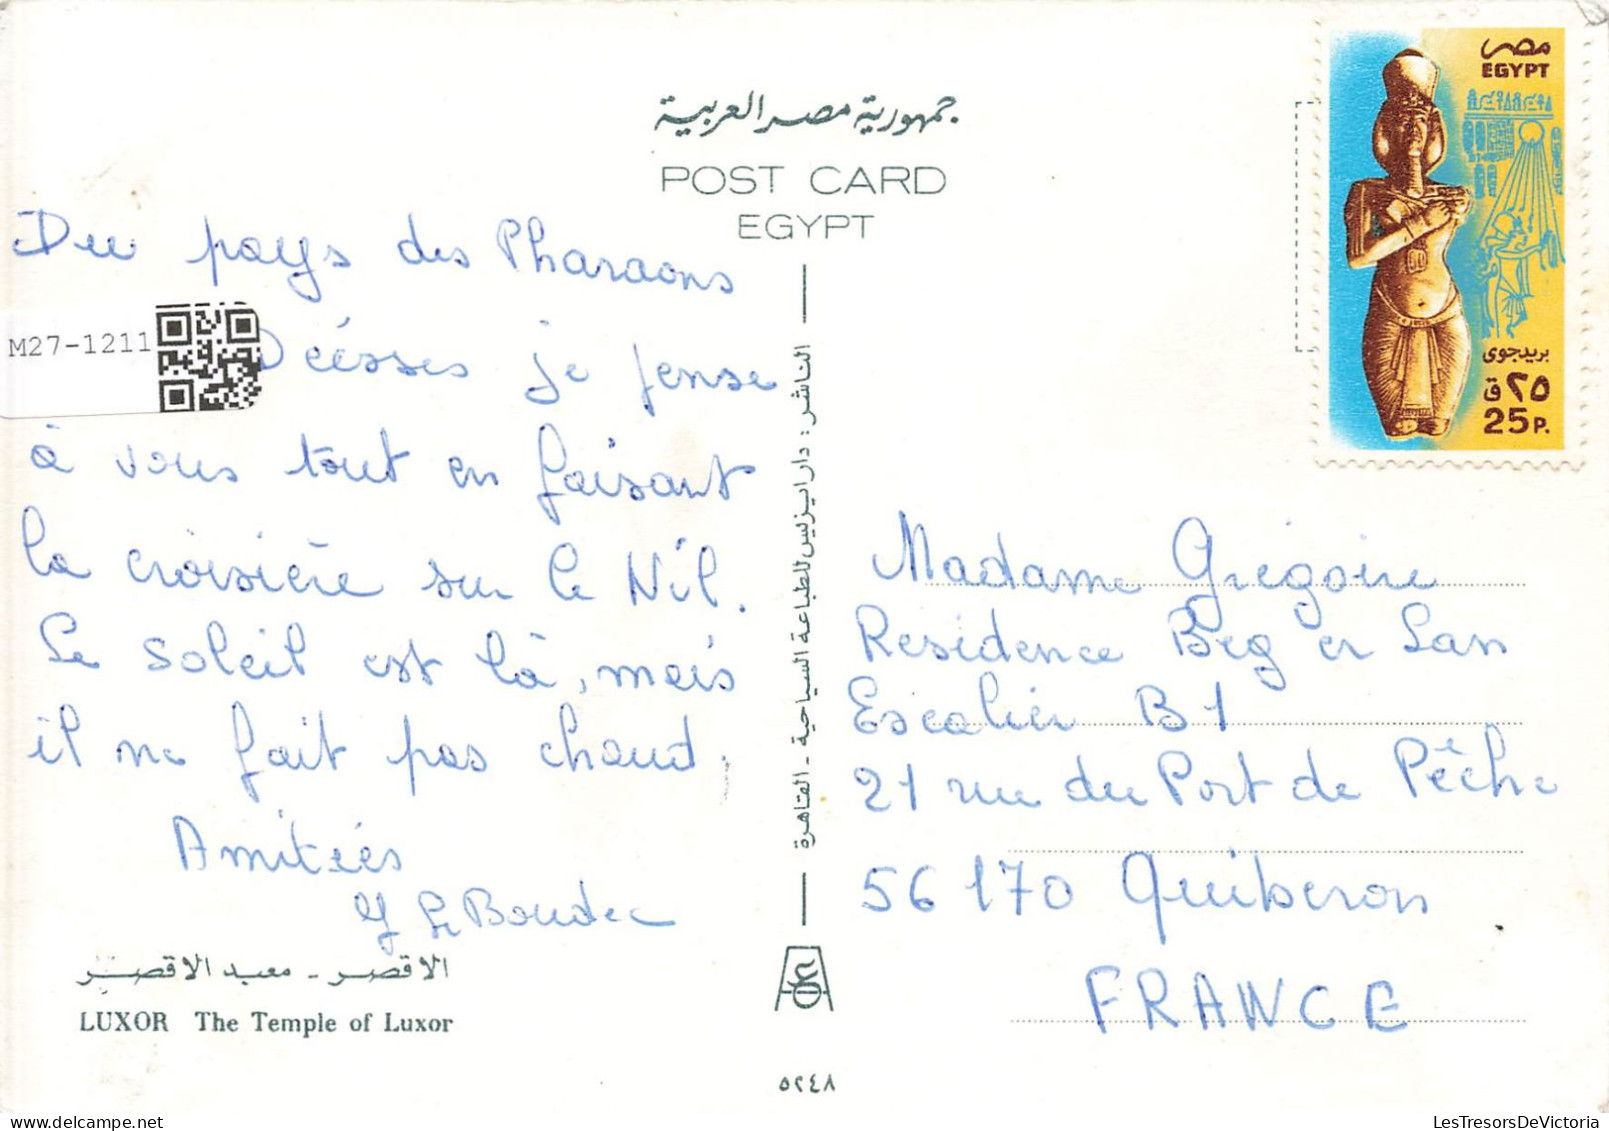 جمهورية مصر العربية
POST CARD
EGYPT
مصر
EGYPT
بريد جوى
٢٥ ق
25 P.
M27-1211
Du pays des Pharaons
Déésses je pense
à vous tout en faisant
la croisière sur le Nil.
Le soleil est là, mais
il ne fait pas chaud.
Amitiés
Y Le Boudec
الناشر : دار ايزيس للطباعة السياحية - القاهرة
Madame Grégoire
Residence Beg er Lan
Escalier B1
21 rue du Port de Pêche
56170 Quiberon
FRANCE
الاقصر - معبد الاقصر
LUXOR The Temple of Luxor
٥٢٤٨
LesTresorsDeVictoria